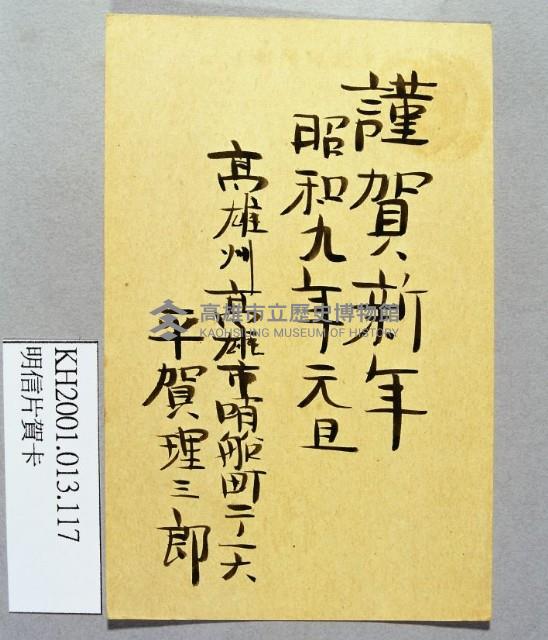 謹賀新年
昭和九年元旦
高雄州高雄市哨船町二ノ一六
平賀理三郎
高雄市立歷史博物館
KAOHSIUNG MUSEUM OF HISTORY
KH2001.013.117
明信片賀卡